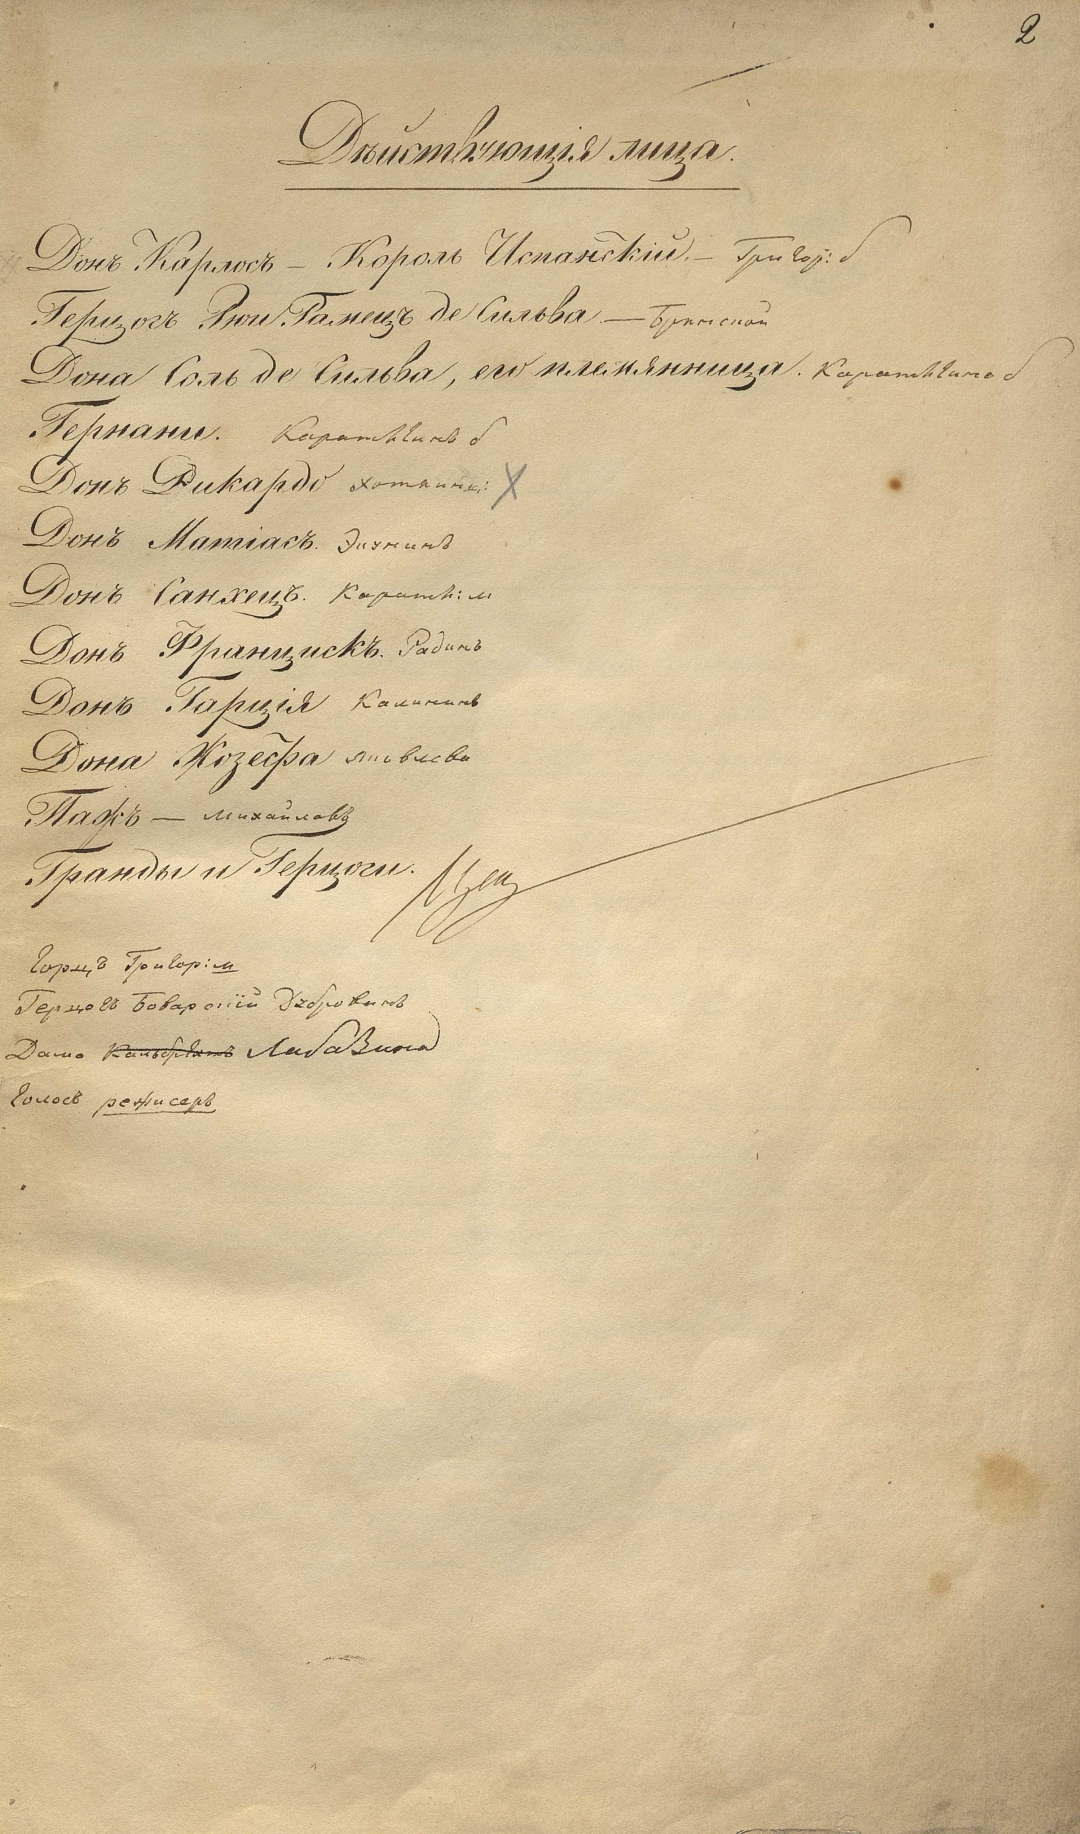 2
Дѣйствующія лица.
Донъ Карлосъ – Король Испанскій. – Григор: б
Герцогъ Рюи Гамецъ де Сильва – Брянской
Дона Соль де Сильва, его племянница. Каратыгина б
Гернани. Каратыгинъ б
Донъ Рикардо
Донъ Матіасъ.
Донъ Санхецъ. Каратыг: м
Донъ Францискъ. Радинъ
Донъ Гарція Калининъ
Дона Жозефа Яковлева
Пажъ – Михайловъ
Гранды и Герцоги.
Горецъ Григор: м
Герцогъ Боварскій Дубровинъ
Дама
Голосъ режисеръ